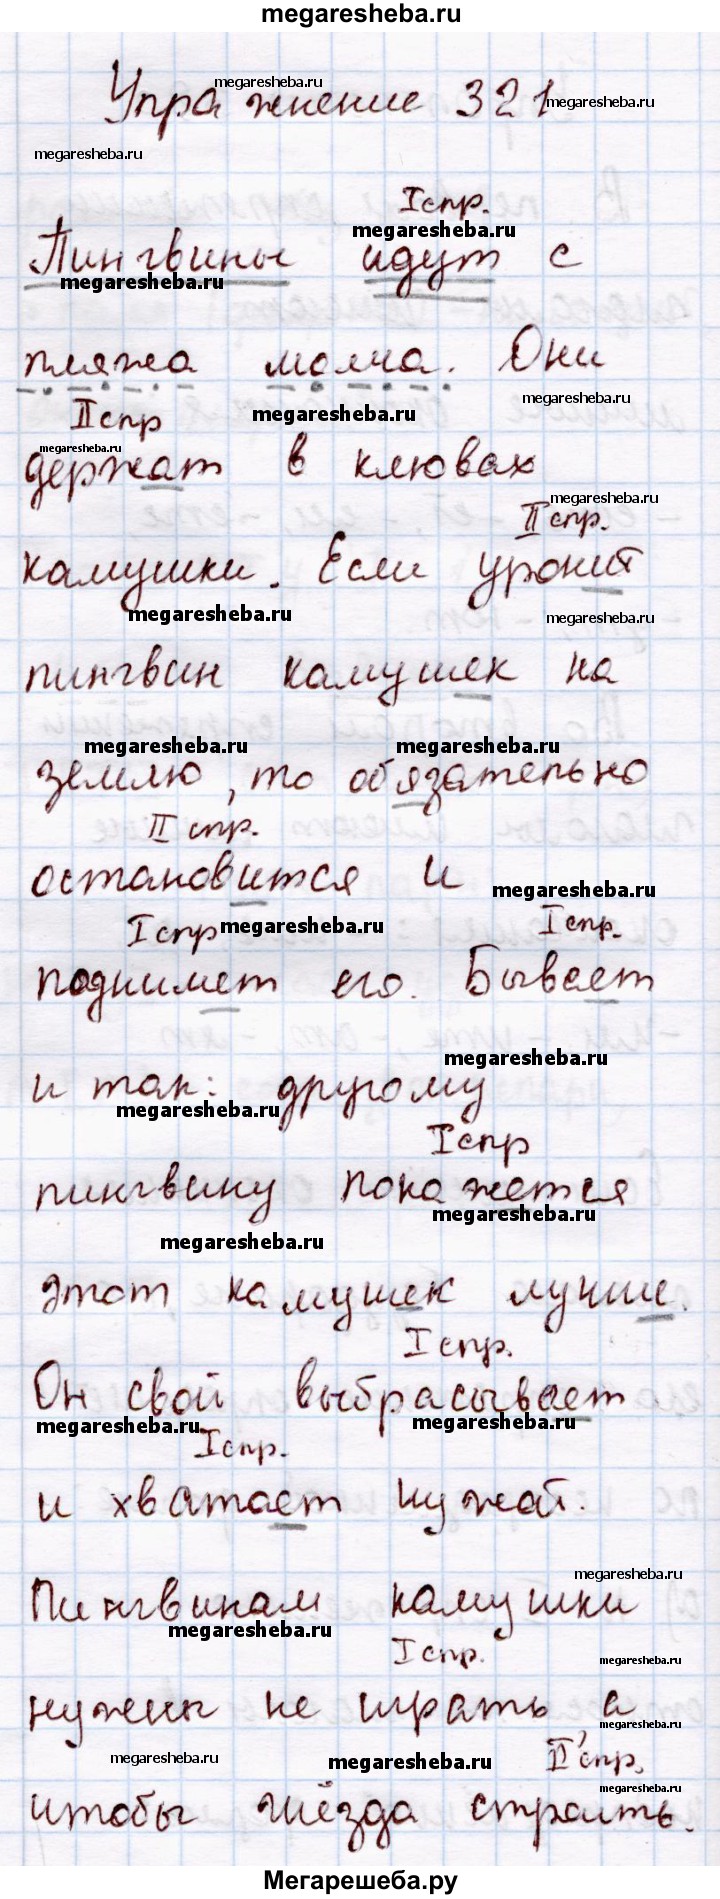 megaresheba.ru
Упражнение 321
I спр.
Пингвины идут с
пляжа молча. Они
II спр
держат в клювах
II спр.
камушки. Если уронит
пингвин камушек на
землю, то обязательно
II спр.
остановится и
I спр I спр.
поднимет его. Бывает
и так: другому
I спр
пингвину покажется
этот камушек лучше.
I спр.
Он свой выбрасывает
I спр.
и хватает чужой.
Пингвинам камушки
I спр.
нужны не играть, а
II спр.
чтобы гнёзда строить.
Мегарешеба.ру